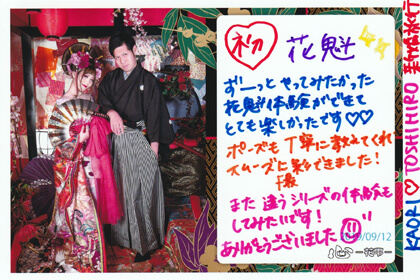 初 花魁
ずーっと やってみたかった
花魁体験ができて
とても楽しかったです♡♡
ポーズも丁寧に教えてくれ
スムーズに
できました!
また 違うシリーズの体験も
してみたいです!
ありがとうございました
09/12
心 ー花雫ー
KAORI ♡ TOSHIHIRO